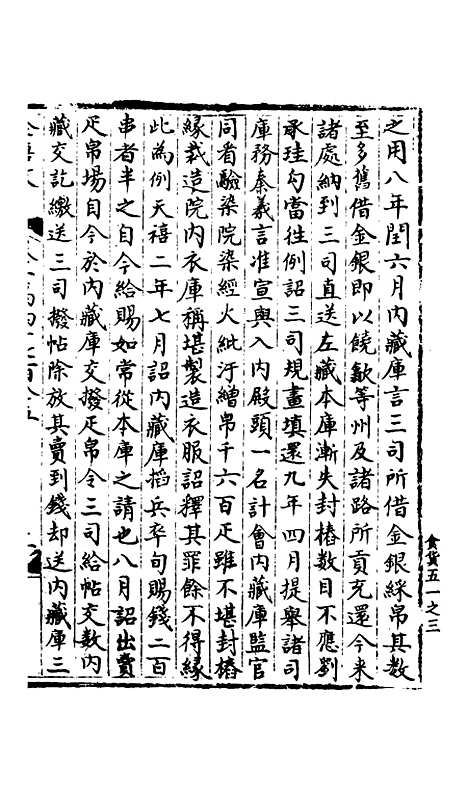 食貨五一之三
之用八年閏六月內藏庫言三司所借金銀綵帛其數
至多舊借金銀即以饒歙等州及諸路所貢充還今來
諸處納到三司直送左藏本庫漸失封樁數目不應劉
承珪勾當往例詔三司規畫填還九年四月提舉諸司
庫務秦羲言准宣與入內殿頭一名計會內藏庫監官
同看驗染院染經火紕汙繒帛千六百疋雖不堪封樁
緣裁造院內衣庫稱堪製造衣服詔釋其罪餘不得緣
此為例天禧二年七月詔內藏庫搯兵卒旬賜錢二百
串者半之自今給賜如常從本庫之請也八月詔出賣
疋帛場自今於內藏庫交撥疋帛令三司給帖交數內
藏交訖繳送三司撥帖除放其賣到錢却送內藏庫三